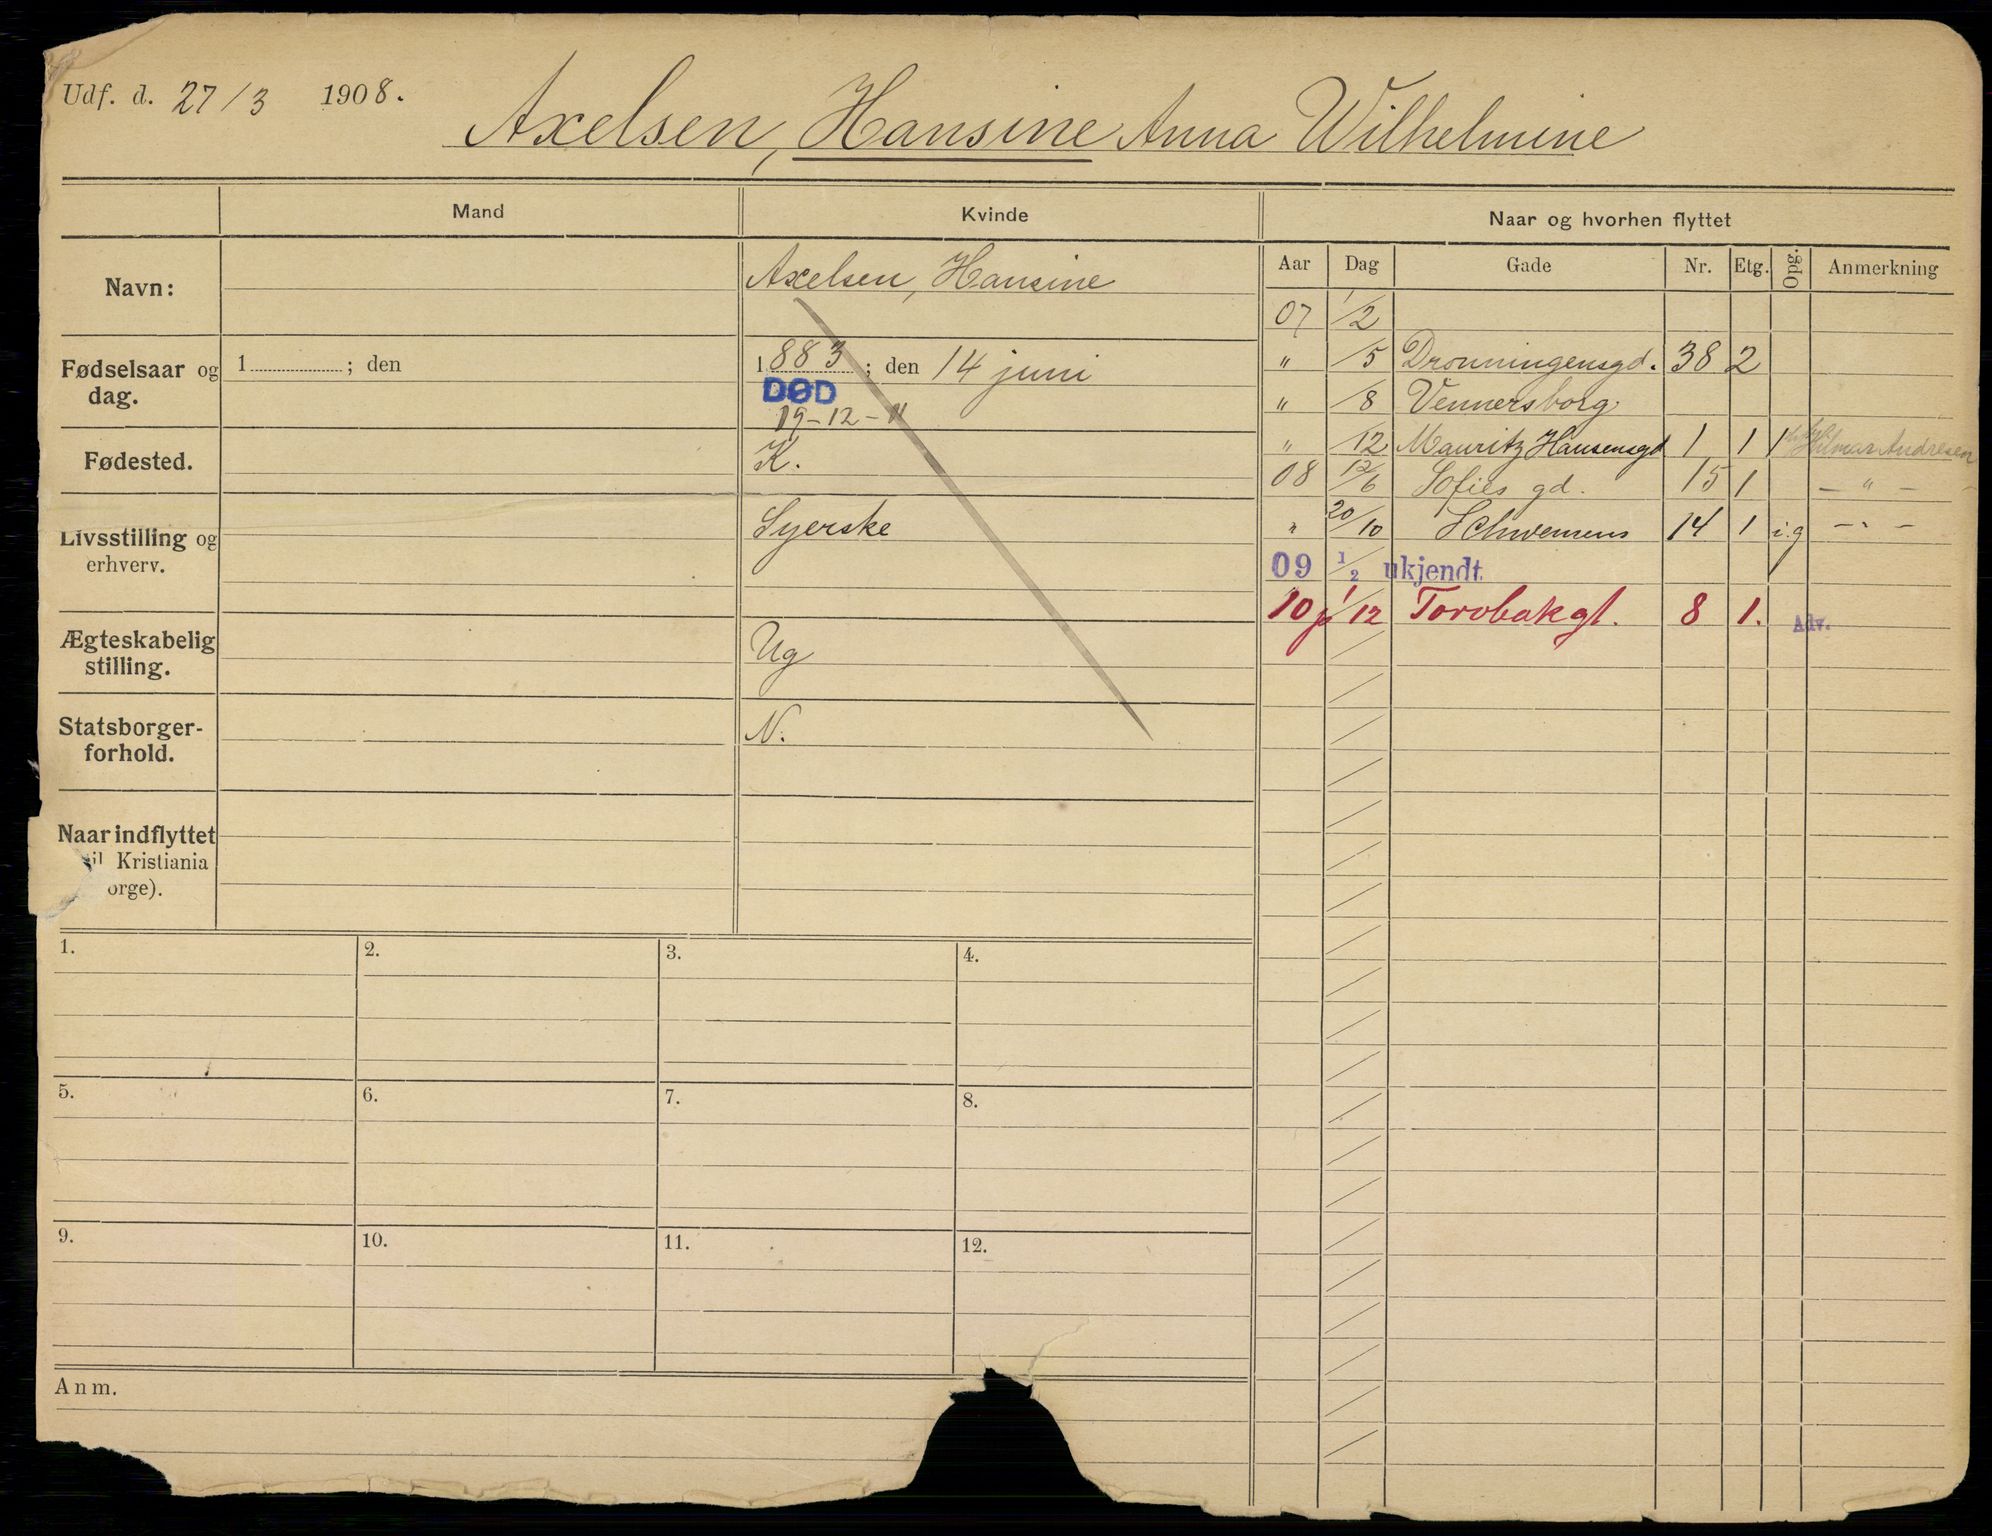 Udf. d. 27/3 1908.
Axelsen, Hansine Anna Wilhelmine
Mand
Kvinde
Naar og hvorhen flyttet
Navn:
Axelsen, Hansine
Aar Dag Gade Nr. Etg. Opg. Anmerkning
07 1/2
" /5 Dronningensgd. 38 2
" /8 Vennersborg
" /12 Mauritz Hansensgd 1 1 1 Hilmar Andresen
08 12/6 Sofies gd. 15 1 — " —
" 20/10 Schwensens 14 1 i.g — " —
09 1/2 ukjendt
10 1/12 Torvbakgt. 8 1. Adv.
Fødselsaar og dag.
1 ; den
1883 ; den 14 juni
DØD
19-12-11
Fødested.
K.
Livsstilling og erhverv.
Syerske
Ægteskabelig stilling.
Ug
Statsborger-
forhold.
N.
Naar indflyttet
til Kristiania
orge).
1. 2. 3. 4.
5. 6. 7. 8.
9. 10. 11. 12.
Anm.